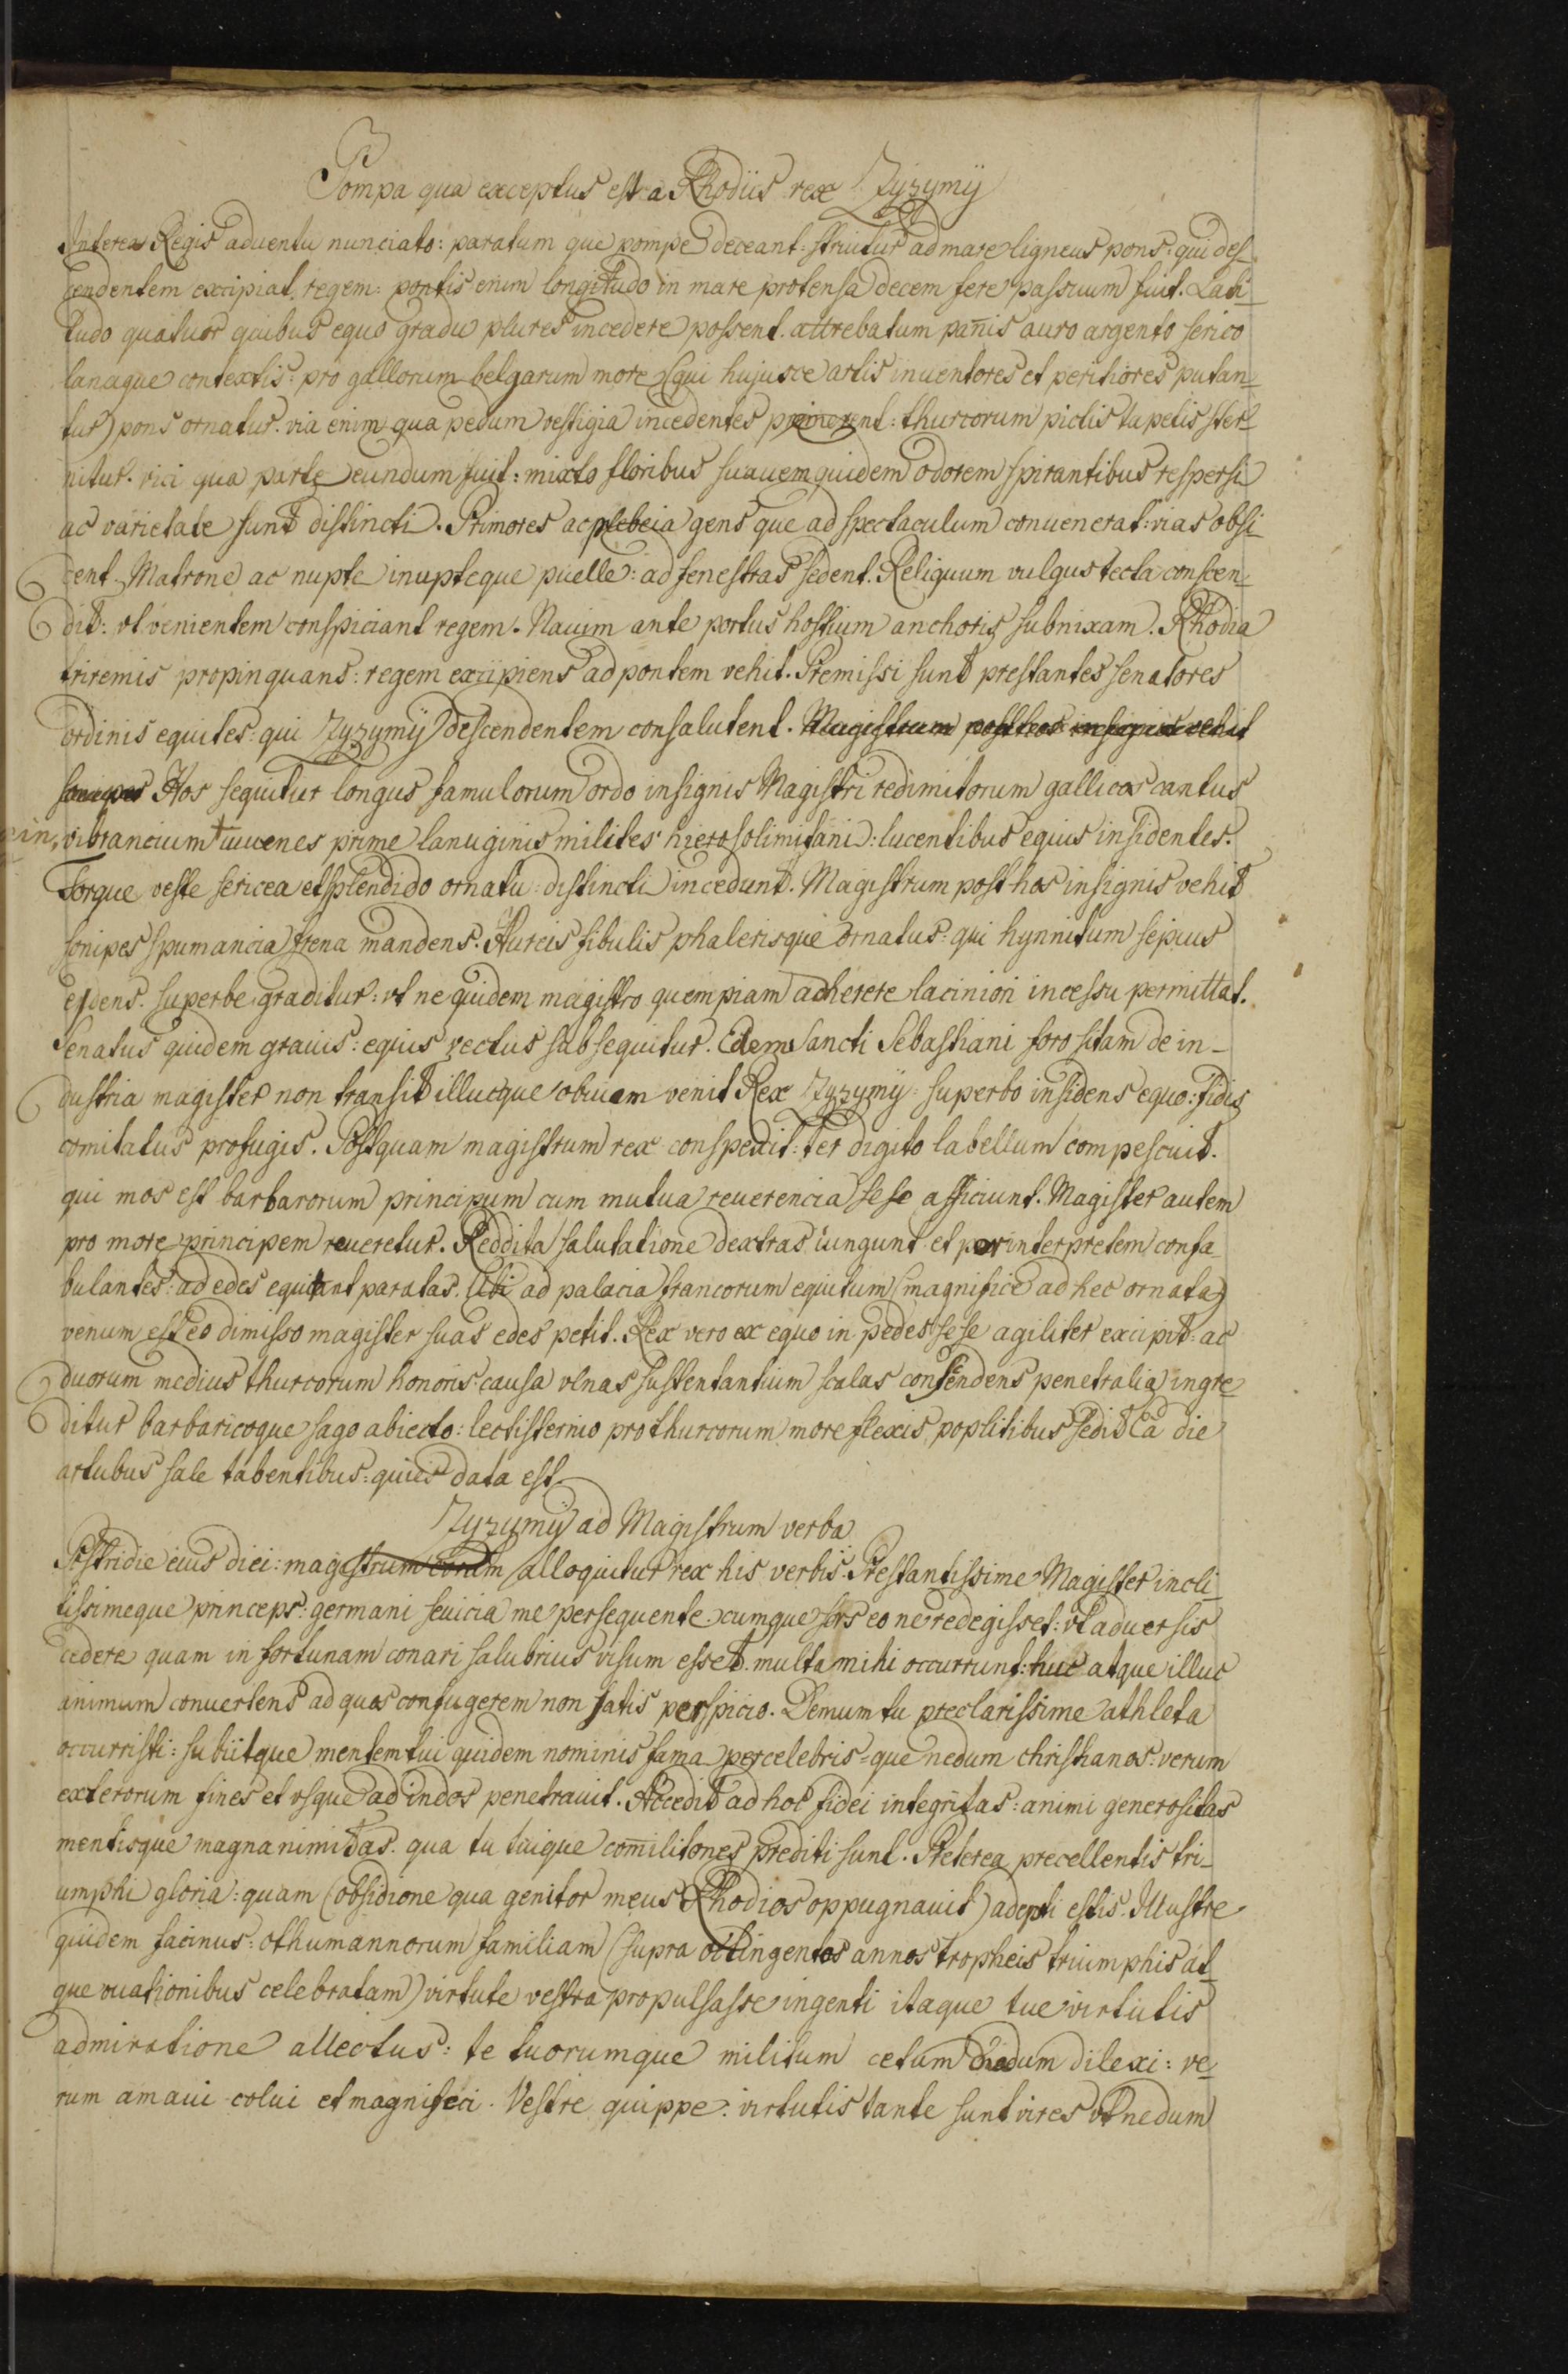 Pompa qua exceptus est a Rhodiis rex Zyzymÿ
Interea Regis aduentu nunciato: paratum que pompe deceant: struitur ad mare ligneus pons: qui des-
cendentem excipiat regem: pontis enim longitudo in mare protensa decem fere passuum fuit. Lati-
tudo quatuor quibus equo gradu plures incedere possent. attrebatum pañis auro argento serico
lanaque contextis: pro gallorum belgarum more (qui hujusce artis inuentores et peritiores putan-
tur) pons ornatur. via enim qua pedum vestigia incedentes: thurcorum pictis tapetis ster-
nitur. vici qua parte eundum fuit: mixto floribus suauem quidem odorem spirantibus respersi
ac varietate sunt distincti. Primores ac plebeia gens que ad spectaculum conuenerat: vias obsi-
dent. Matrone ac nupte inupteque puelle: ad fenestras sedent. Reliquum vulgus tecta conscen-
dit: vt venientem conspiciant regem. Nauim ante portus hostium anchoris subnixam. Rhodia
triremis propinquans: regem excipiens ad pontem vehit. Premissi sunt prestantes senatores
ordinis equites: qui Zyzymÿ descendentem consalutent. Magistrum post hos insignis vehit
sonipes Hos sequitur longus famulorum ordo insignis Magistri redimitorum gallicos cantus
in, vibrancium iuuenes prime lanuginis milites hierosolimitani: lucentibus equis insidentes.
Torque veste sericea et splendido ornatu: distincti incedunt. Magistrum post hos insignis vehit
sonipes spumancia frena mandens. Aureis fibulis phalerisque ornatus: qui hynnitum sepius
edens. superbe graditur: vt ne quidem magistro quempiam adherere lacinion incessu permittat.
Senatus quidem grauis: equis vectus subsequitur. Edem Sancti Sebastiani foro sitam de in-
dustria magister non transit illucque obuiam venit Rex Zyzymÿ: superbo insidens equo: fidis
comitatus profugis. Postquam magistrum rex conspexit: ter digito labellum compescuit.
qui mos est barbarorum principum cum mutua reuerencia sese afficiunt. Magister autem
pro more principem reueretur. Reddita salutatione dextras iungunt et per interpretem confa-
bulantes: ad edes equitant paratas. Ubi ad palacia francorum equitum (magnifice ad hec ornata)
venum est eo dimisso magister suas edes petit. Rex vero ex equo in pedes sese agiliter excipit: ac
duorum medius thurcorum honoris causa vlnas sustentantium scalas conscendens penetralia ingre-
ditur barbaricoque sago abiecto: lectisternio pro thurcorum more flexis poplitibus sedit Ea die
artubus sale tabentibus: quies data est.
Zyzymÿ ad Magistrum verba
Postridie eius diei: magistrum coram alloquitur rex his verbis. Prestantissime Magister incli-
tissimeque princeps: germani seuicia me persequente. cumque sors eo ne redegisset: vt aduersis
cedere quam in fortunam conari salubrius visum esset. multa mihi occurrunt: huc atque illuc
animum conuertens ad quos confugerem non satis perspicio. Demum tu preclarissime athleta
occurristi: subiitque mentem tui quidem nominis fama percelebris: que nedum christianos: verum
exterorum fines et vsque ad indos penetrauit. Accedit ad hoc fidei integritas: animi generositas
mentisque magnanimitas. qua tu tuique com̃ilitones prediti sunt. Preterea precellentis tri-
umphi gloria: quam (obsidione qua genitor meus Rhodios oppugnauit) adepti estis. Illustre
quidem facinus: othumannorum familiam (supra octingentos annos tropheis triumphis at-
que ouationibus celebratam) virtute vestra propulsasse ingenti itaque tue virtutis
admiratione allectus: te tuorumque militum cetum nedum dilexi: ve-
rum amaui colui et magnifeci. Vestre quippe: virtutis tante sunt vires vt nedum